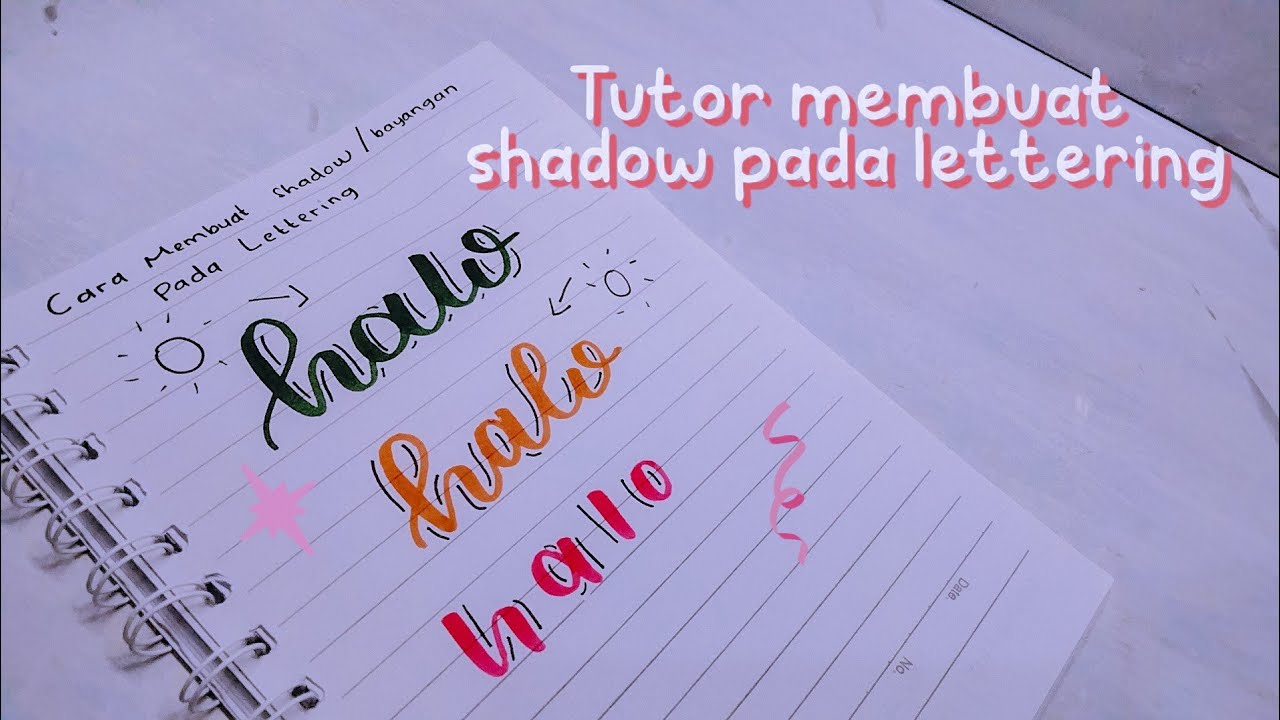 Tutor membuat
shadow pada lettering
Cara Membuat shadow/bayangan
Pada Lettering
halo
halo
halo
Date.
No.